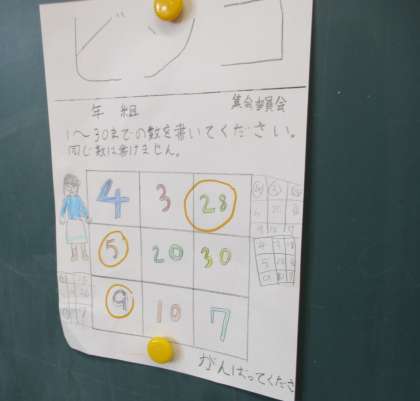 ビンゴ
年 組 集会委員会
1〜30までの数を書いてください。
同じ数は書けません。
4 3 28
5 20 30
9 10 7
がんばってくださ